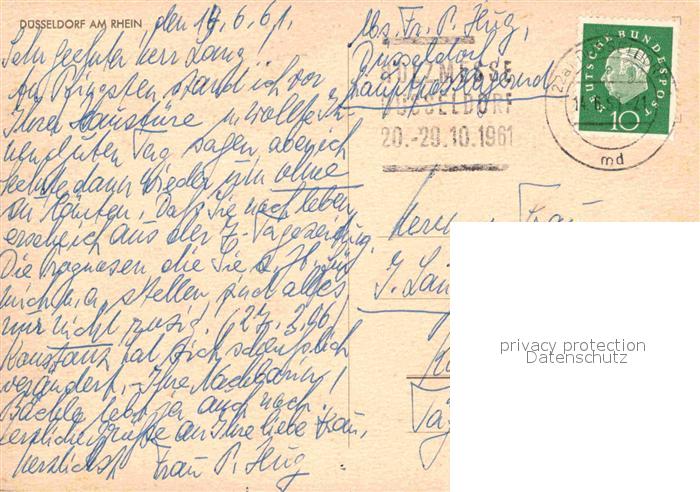 DÜSSELDORF AM RHEIN
den 16.6.61.
Sehr geehrter Herr Lang
An Pfingsten stand ich vor
Ihrer Haustüre u. wollte Ih-
nen guten Tag sagen aber ich
kehrte dann wieder um ohne
zu läuten. Daß Sie noch leben
ersehe ich aus der Z-Tageszeitung.
Die Prognosen die Sie s. Zt. für
mich u.a. stellen sind alles
nur nicht rosig! (27.3.96)
Konstanz hat sich scheusslich
verändert, - Ihre Nachbarin
Bächle lebt ja auch noch.
Herzliche Grüße an Ihre liebe Frau,
herzlichst Frau P. Hug
Abs. Fr. P. Hug,
Düsseldorf
Hauptpostlagernd
DÜSSELDORF
20.-29.10.1961
md
DEUTSCHE BUNDESPOST
10
Herrn u. Frau
J.
privacy protection
Datenschutz